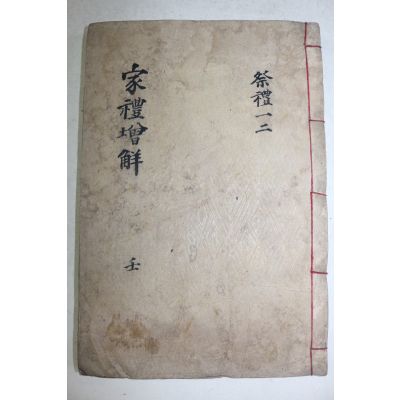 祭禮 一二
家禮增解
壬